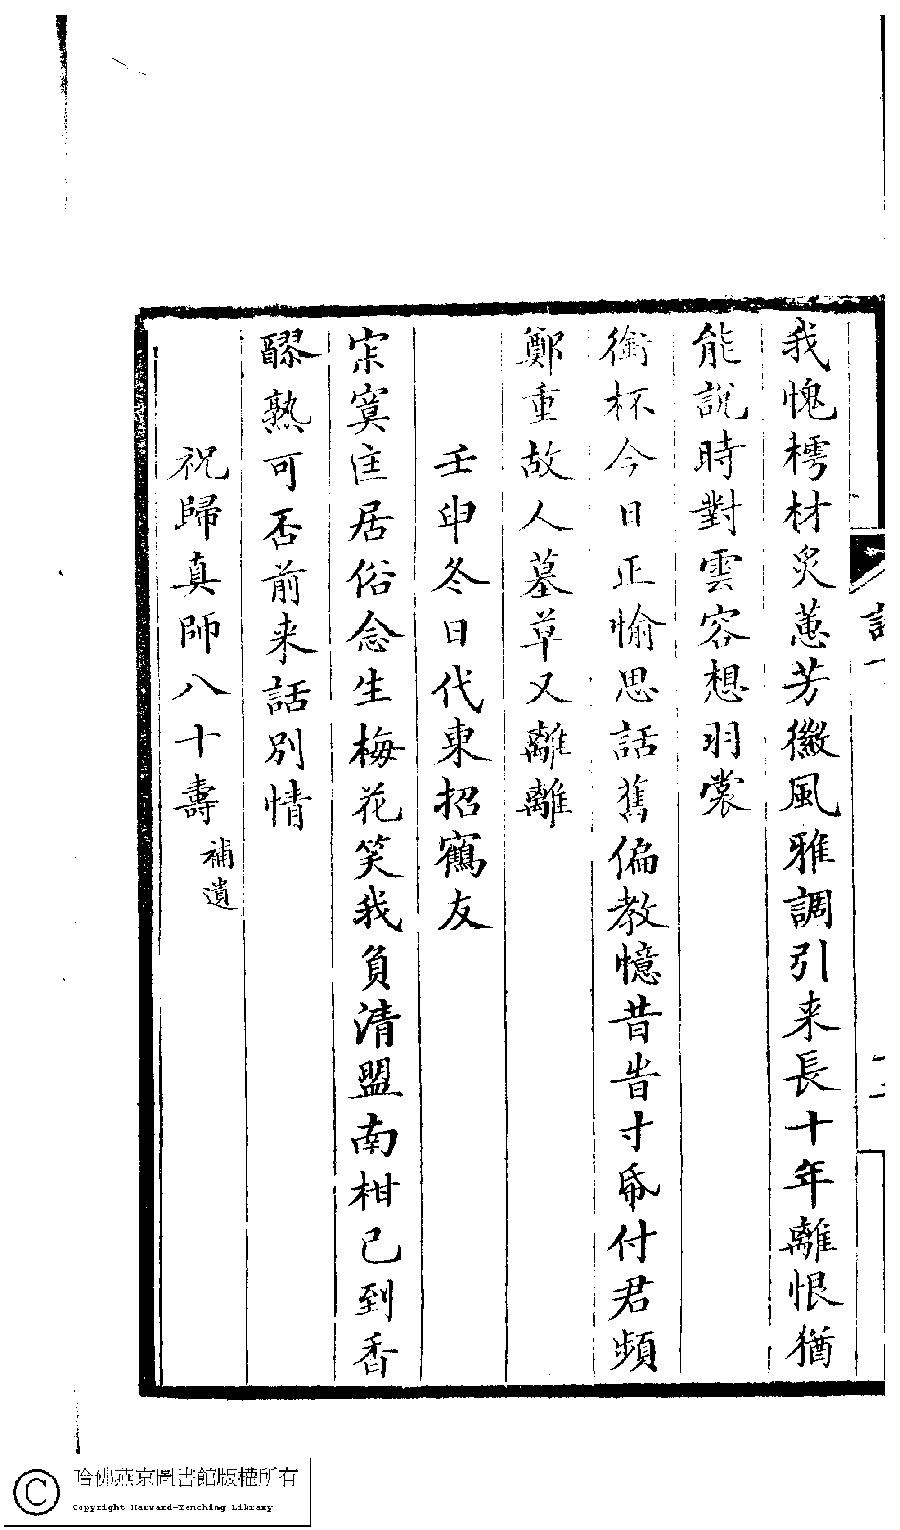 我愧樗材炙蕙芳徽風雅調引来長十年離恨猶
能說時對雲容想羽裳
銜杯今日正愉思話舊偏教憶昔旹寸帋付君頻
鄭重故人墓草又離離
壬申冬日代柬招鶴友
寂寞隹居俗念生梅花笑我負清盟南柑已到香
醪熟可否前来話別情
祝歸真師八十壽 補遺
哈佛燕京圖書館版權所有
Copyright Harvard-Yenching Library